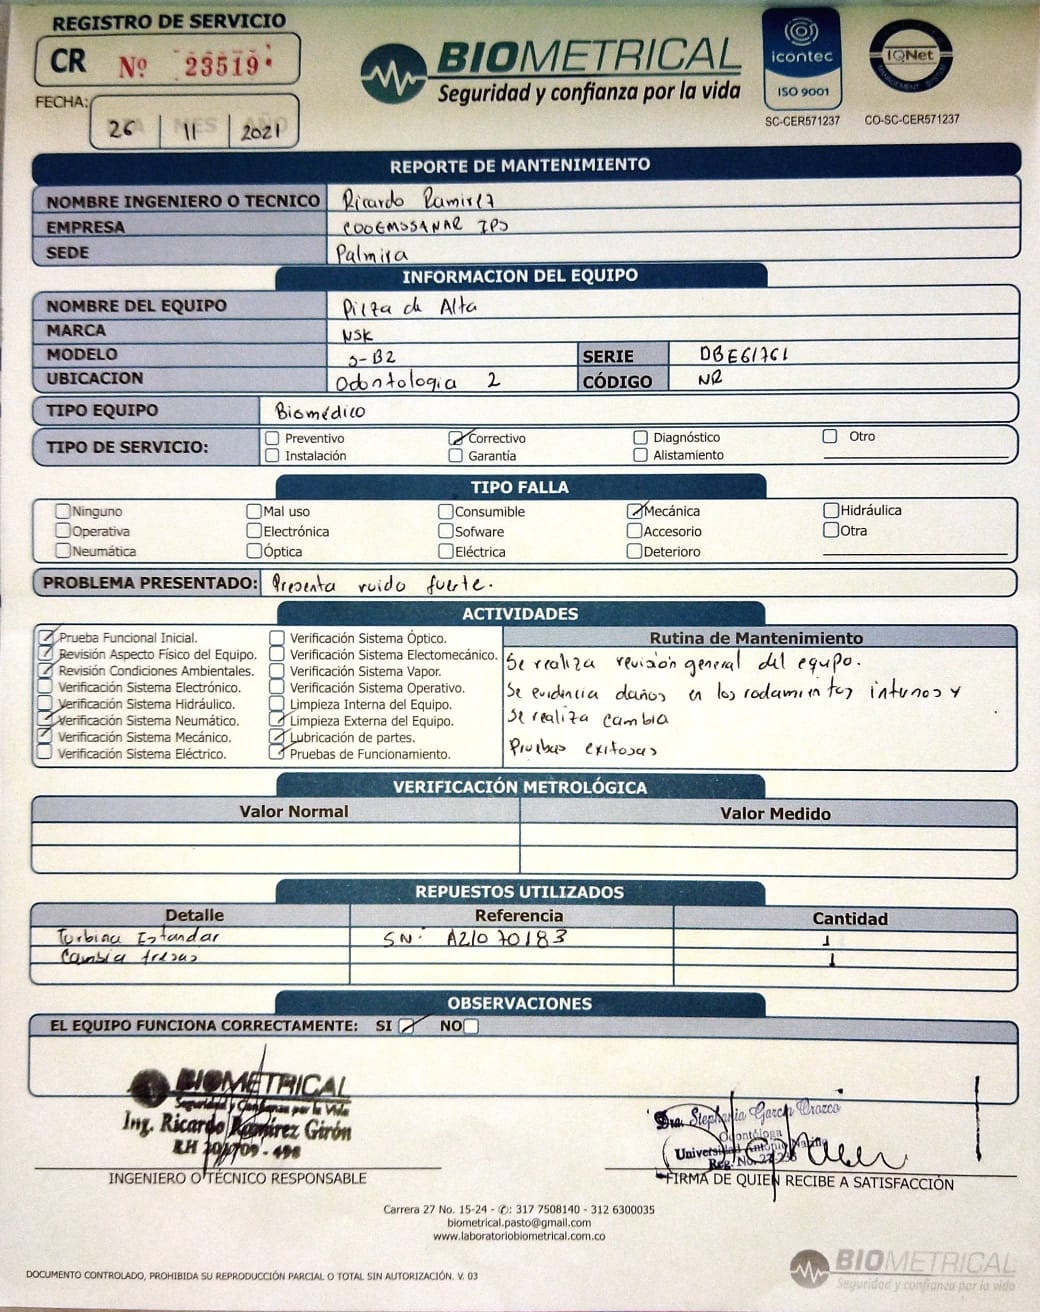 REGISTRO DE SERVICIO
CR Nº 23519
BIOMETRICAL
Seguridad y confianza por la vida
icontec
ISO 9001
SC-CER571237
IQNet
CO-SC-CER571237
FECHA: 26 11 2021
REPORTE DE MANTENIMIENTO
NOMBRE INGENIERO O TECNICO Ricardo Ramirez
EMPRESA COOEMSSANAR IPS
SEDE Palmira
INFORMACION DEL EQUIPO
NOMBRE DEL EQUIPO Pieza de Alta
MARCA NSK
MODELO S-B2 SERIE DBE61761
UBICACION Odontologia 2 CÓDIGO NR
TIPO EQUIPO Biomédico
TIPO DE SERVICIO:
Preventivo Correctivo Diagnóstico Otro
Instalación Garantía Alistamiento
TIPO FALLA
Ninguno Mal uso Consumible Mecánica Hidráulica
Operativa Electrónica Sofware Accesorio Otra
Neumática Óptica Eléctrica Deterioro
PROBLEMA PRESENTADO: Presenta ruido fuerte.
ACTIVIDADES
Prueba Funcional Inicial.
Revisión Aspecto Físico del Equipo.
Revisión Condiciones Ambientales.
Verificación Sistema Electrónico.
Verificación Sistema Hidráulico.
Verificación Sistema Neumático.
Verificación Sistema Mecánico.
Verificación Sistema Eléctrico.
Verificación Sistema Óptico.
Verificación Sistema Electomecánico.
Verificación Sistema Vapor.
Verificación Sistema Operativo.
Limpieza Interna del Equipo.
Limpieza Externa del Equipo.
Lubricación de partes.
Pruebas de Funcionamiento.
Rutina de Mantenimiento
Se realiza revisión general del equipo.
Se evidencia daños en los rodamientos internos y
se realiza cambia
Pruebas exitosas
VERIFICACIÓN METROLÓGICA
Valor Normal Valor Medido
REPUESTOS UTILIZADOS
Detalle Referencia Cantidad
Turbina Estandar SN: A21070183 1
Cambia fresas 1
OBSERVACIONES
EL EQUIPO FUNCIONA CORRECTAMENTE: SI NO
BIOMETRICAL
Seguridad y Confianza por la Vida
Ing. Ricardo Ramírez Girón
Dra. Stephania García Orozco
Odontóloga
Universidad Antonio Nariño
INGENIERO O TÉCNICO RESPONSABLE
FIRMA DE QUIEN RECIBE A SATISFACCIÓN
Carrera 27 No. 15-24 - ✆: 317 7508140 - 312 6300035
biometrical.pasto@gmail.com
www.laboratoriobiometrical.com.co
DOCUMENTO CONTROLADO, PROHIBIDA SU REPRODUCCIÓN PARCIAL O TOTAL SIN AUTORIZACIÓN. V. 03
BIOMETRICAL
Seguridad y confianza por la vida